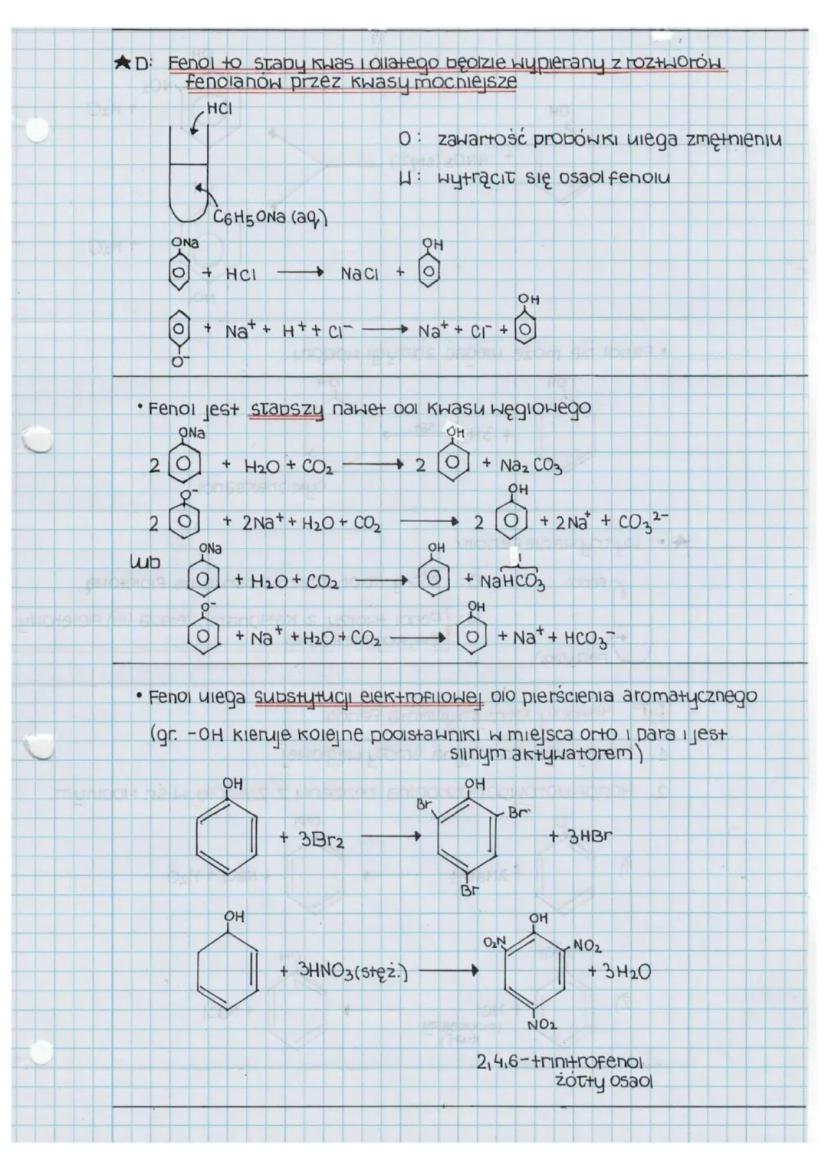 ★ D: Fenol to słaby kwas i dlatego będzie wypierany z roztworów
fenolanów przez kwasy mocniejsze
HCl
O: zawartość probówki ulega zmętnieniu
W: wytrącił się osad fenolu
C6H5ONa (aq)
ONa
OH
+ HCl → NaCl +
OH
+ Na⁺ + H⁺ + Cl⁻ → Na⁺ + Cl⁻ +
O⁻
• Fenol jest słabszy nawet od kwasu węglowego
ONa
OH
2 + H₂O + CO₂ → 2 + Na₂CO₃
O⁻
OH
2 + 2Na⁺ + H₂O + CO₂ → 2 + 2Na⁺ + CO₃²⁻
lub
ONa
OH
+ H₂O + CO₂ → + NaHCO₃
O⁻
OH
+ Na⁺ + H₂O + CO₂ → + Na⁺ + HCO₃⁻
• Fenol ulega substytucji elektrofilowej do pierścienia aromatycznego
(gr. -OH kieruje kolejne podstawniki w miejsca orto i para i jest
silnym aktywatorem)
OH
OH
Br
Br
+ 3Br₂ → + 3HBr
Br
OH
OH
O₂N
NO₂
+ 3HNO₃(stęż.) → + 3H₂O
NO₂
2,4,6-trinitrofenol
żółty osad